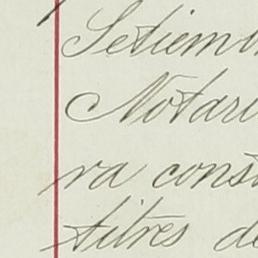 Setiem
Notari
ra cons
titres de